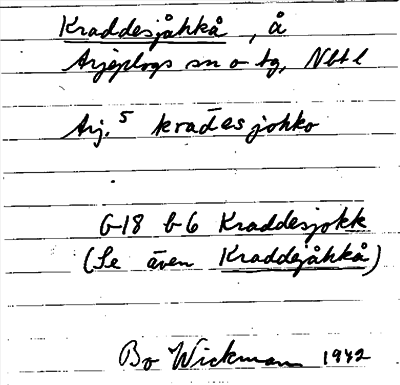 Kraddesjåhkå, å
Arjeplogs sn o tg, Nbtl
Arj. 5 krađēsjohko
G-18 b-6 Kraddesjokk
(Se även Kraddejåhkå)
Bo Wickmann 1942